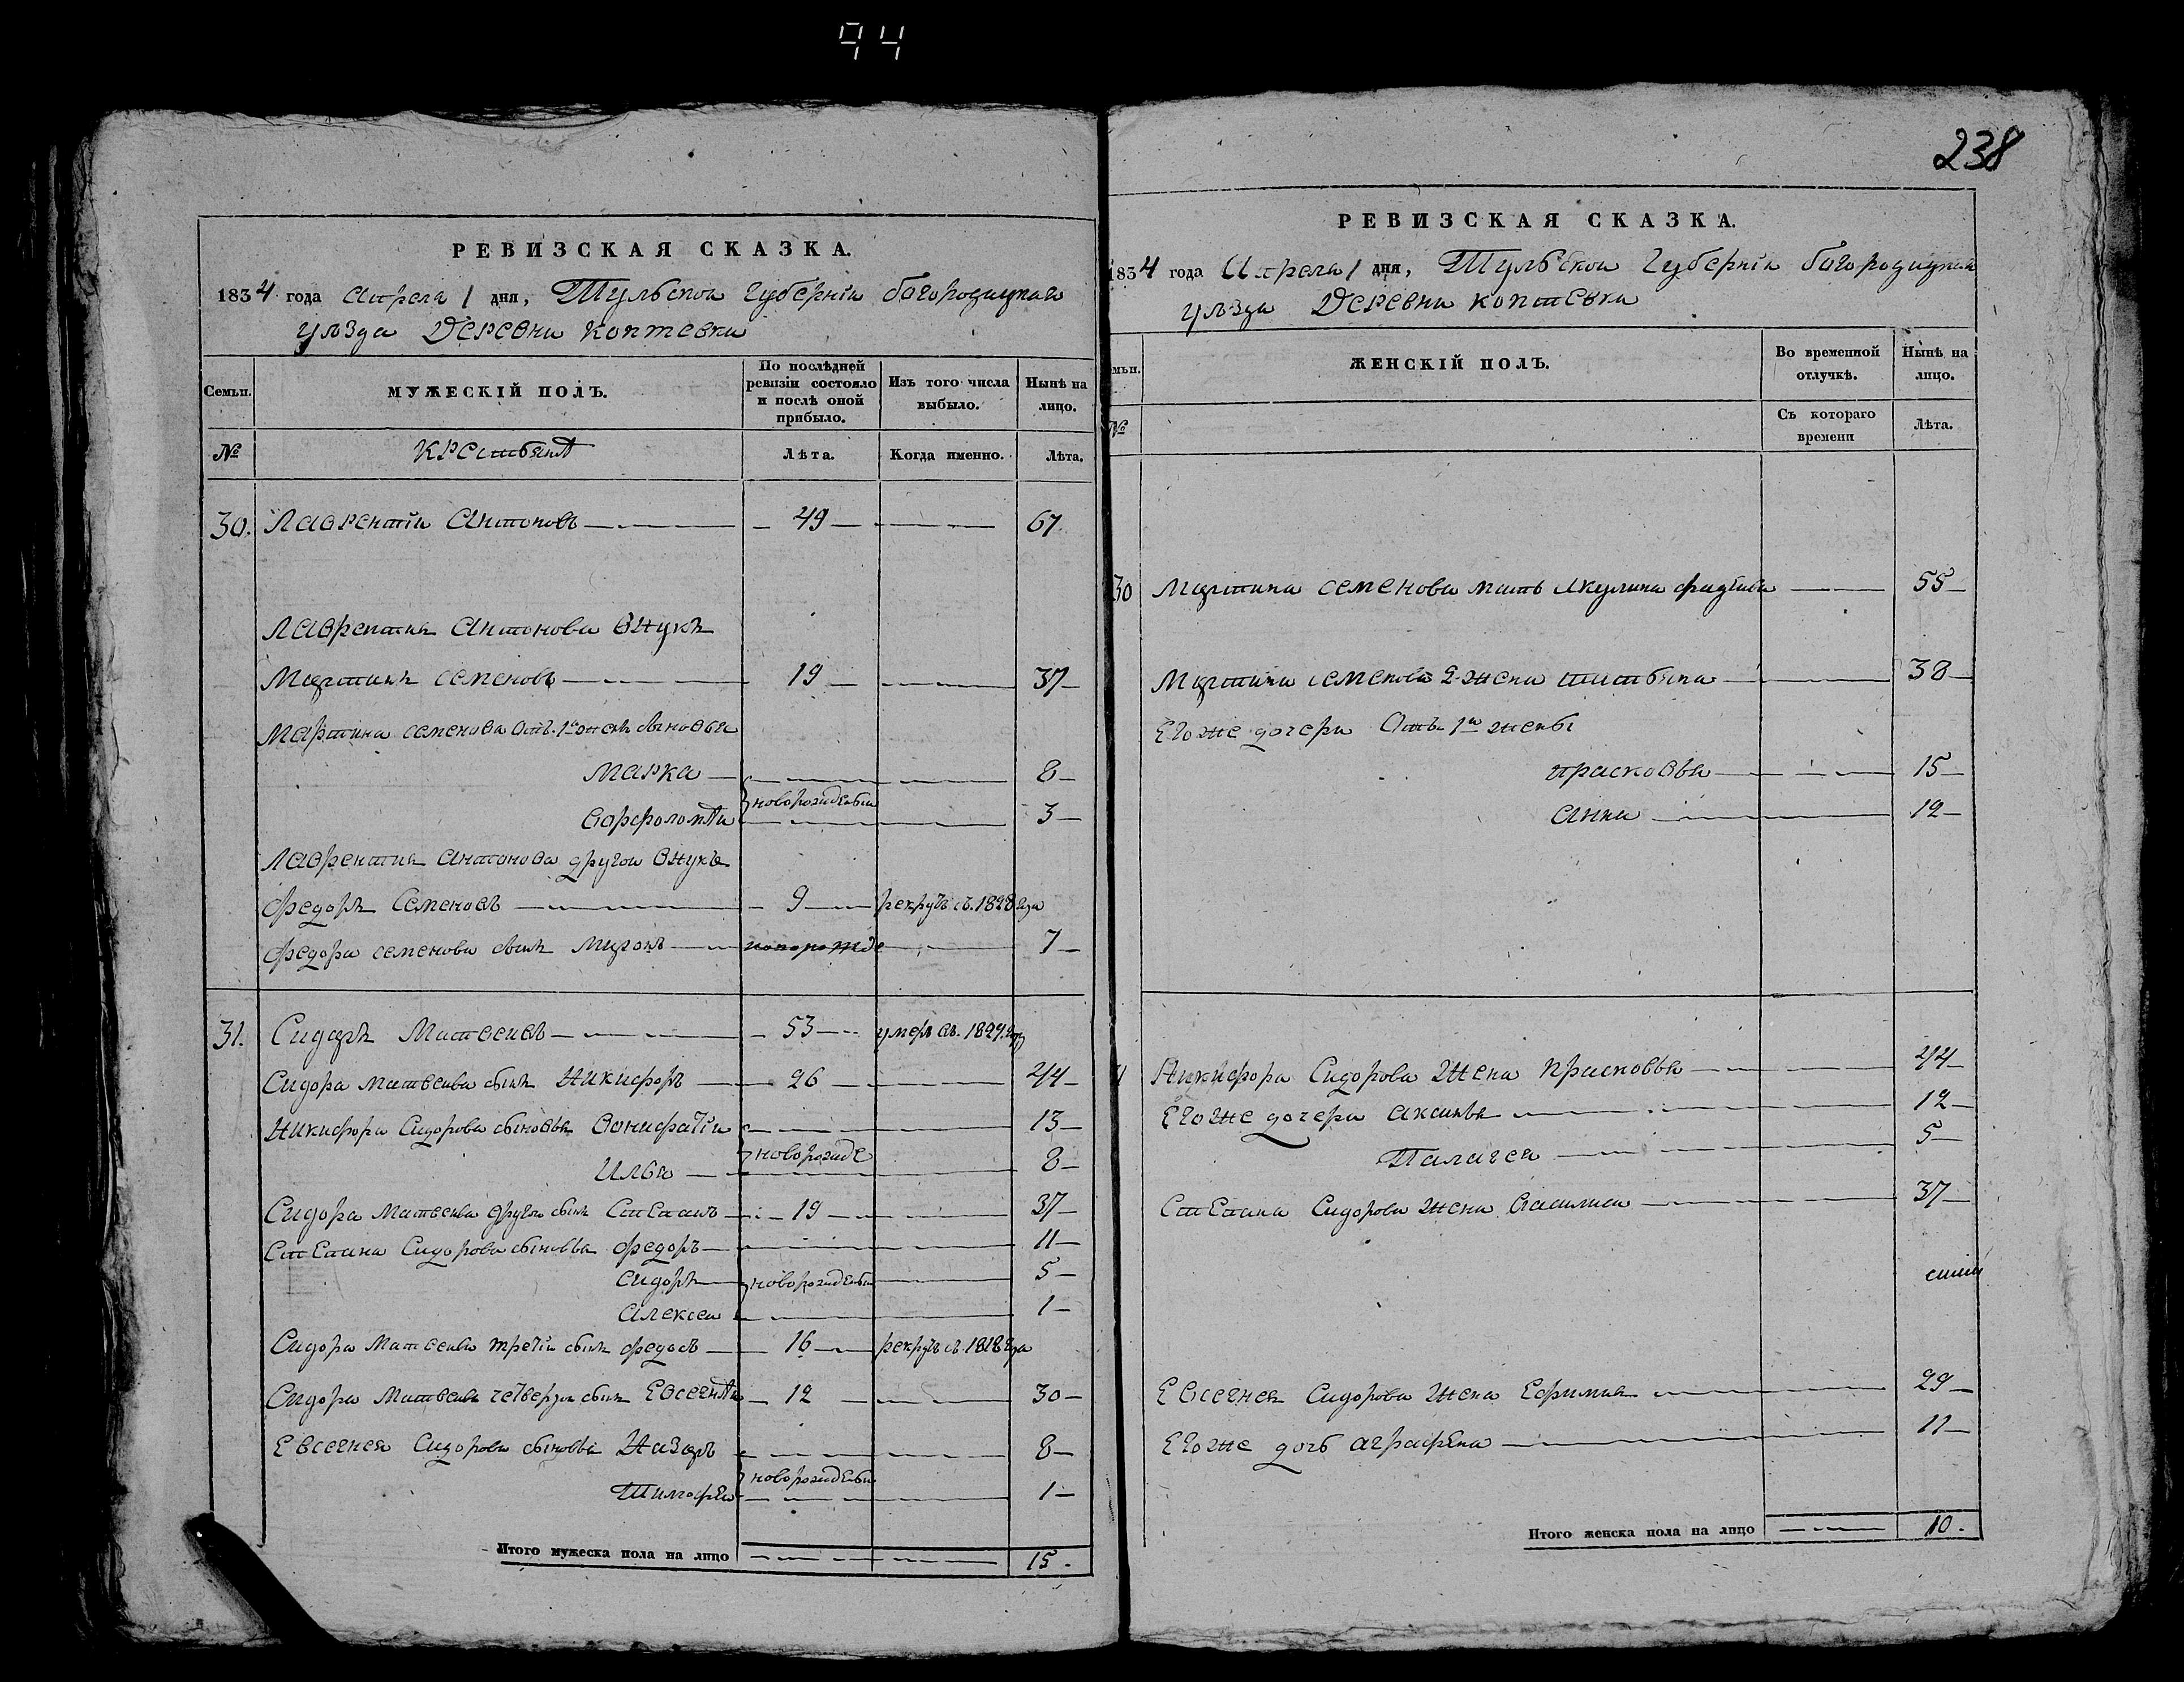 94
РЕВИЗСКАЯ СКАЗКА.
1834 года Апреля 1 дня, Тульской Губернiи богородицкаго
уѣзда Деревни коптевки
Семьи. МУЖЕСКIЙ ПОЛЪ. По послѣдней ревизiи состояло и послѣ оной прибыло. Изъ того числа выбыло. Нынѣ на лицо.
№ крестьянѣ Лѣта. Когда именно. Лѣта.
30. Лаврентiи Антоновъ 49 67
Лаврентия Антонова внукъ
Мартинъ семеновъ 19 37
Мартина семенова отъ 1й женъ сыновья
Марка 8
новорожденыи
Варфоломѣи 3
Лаврентия Антонова другои внукъ
Федоръ Семеновъ 9 рекрутъ въ 1828 года
Федора семенова сынъ Миронъ новорожде 7
31. Сидоръ Матвеивъ 53 умеръ въ. 1829 году
Сидора Матвеива сынъ Никифоръ 26 44
Никифора Сидорова сыновья Вонифатiи 13
новорожде
Илья 8
Сидора Матвеива другои сынъ Степанъ 19 37
Степана Сидорова сыновья Федоръ 11
Сидоръ новорожденыи 5
Алексеи 1
Сидора Матвеива третiи сынъ Федосъ 16 рекрутъ въ 1818 года
Сидора Матвеива четвертои сынъ Евсегнѣи 12 30
Евсегнея Сидорова сыновья Назаръ 8
новорожденыи
Тимофеи 1
Итого мужеска пола на лицо 15.
238
РЕВИЗСКАЯ СКАЗКА.
1834 года Апреля 1 дня, Тульской Губернiи богородицкаго
уѣзда Деревни коптевки
ЖЕНСКIЙ ПОЛЪ. Во временной отлучкѣ. Нынѣ на лицо.
№ Съ котораго времени Лѣта.
30 Мартина семенова мать Акулина 55
Мартина семенова 2 жена татьяна 38
Егоже дочери отъ 1й жены
прасковья 15
Анна 12
Никифора Сидорова жена прасковья 44
Егоже дочери аксинья 12
Палагея 5
Степана Сидорова жена Василиса 37
Евсегнея Сидорова жена Ефимия 29
Егоже дочь аграфена 11
Итого женска пола на лицо 10.